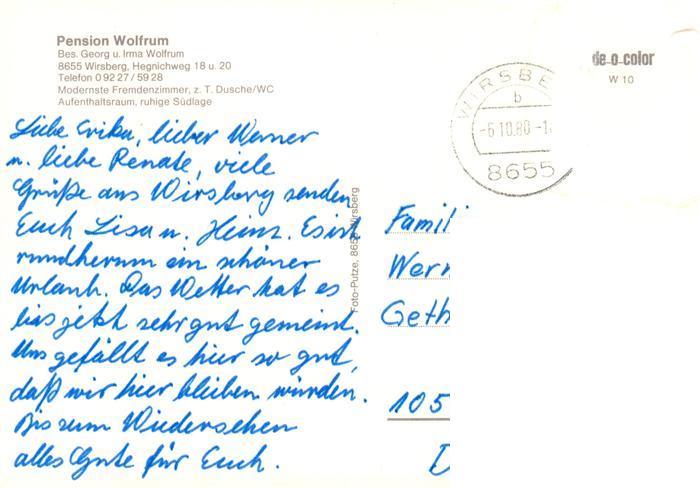 Pension Wolfrum
Bes. Georg u. Irma Wolfrum
8655 Wirsberg, Hegnichweg 18 u. 20
Telefon 0 92 27 / 59 28
Modernste Fremdenzimmer, z. T. Dusche/WC
Aufenthaltsraum, ruhige Südlage
Liebe Erika, lieber Werner
u. liebe Renate, viele
Grüße aus Wirsberg senden
Euch Lisa u. Heinz. Es ist
rundherum ein schöner
Urlaub. Das Wetter hat es
bis jetzt sehr gut gemeint.
Uns gefällt es hier so gut,
daß wir hier bleiben würden.
Bis zum Wiedersehen
alles Gute für Euch.
Foto-Putze, 8655 Wirsberg
de-o-color
W 10
WIRSBE
b
-6.10.80-1
8655
Famil
Wer
Geth
105